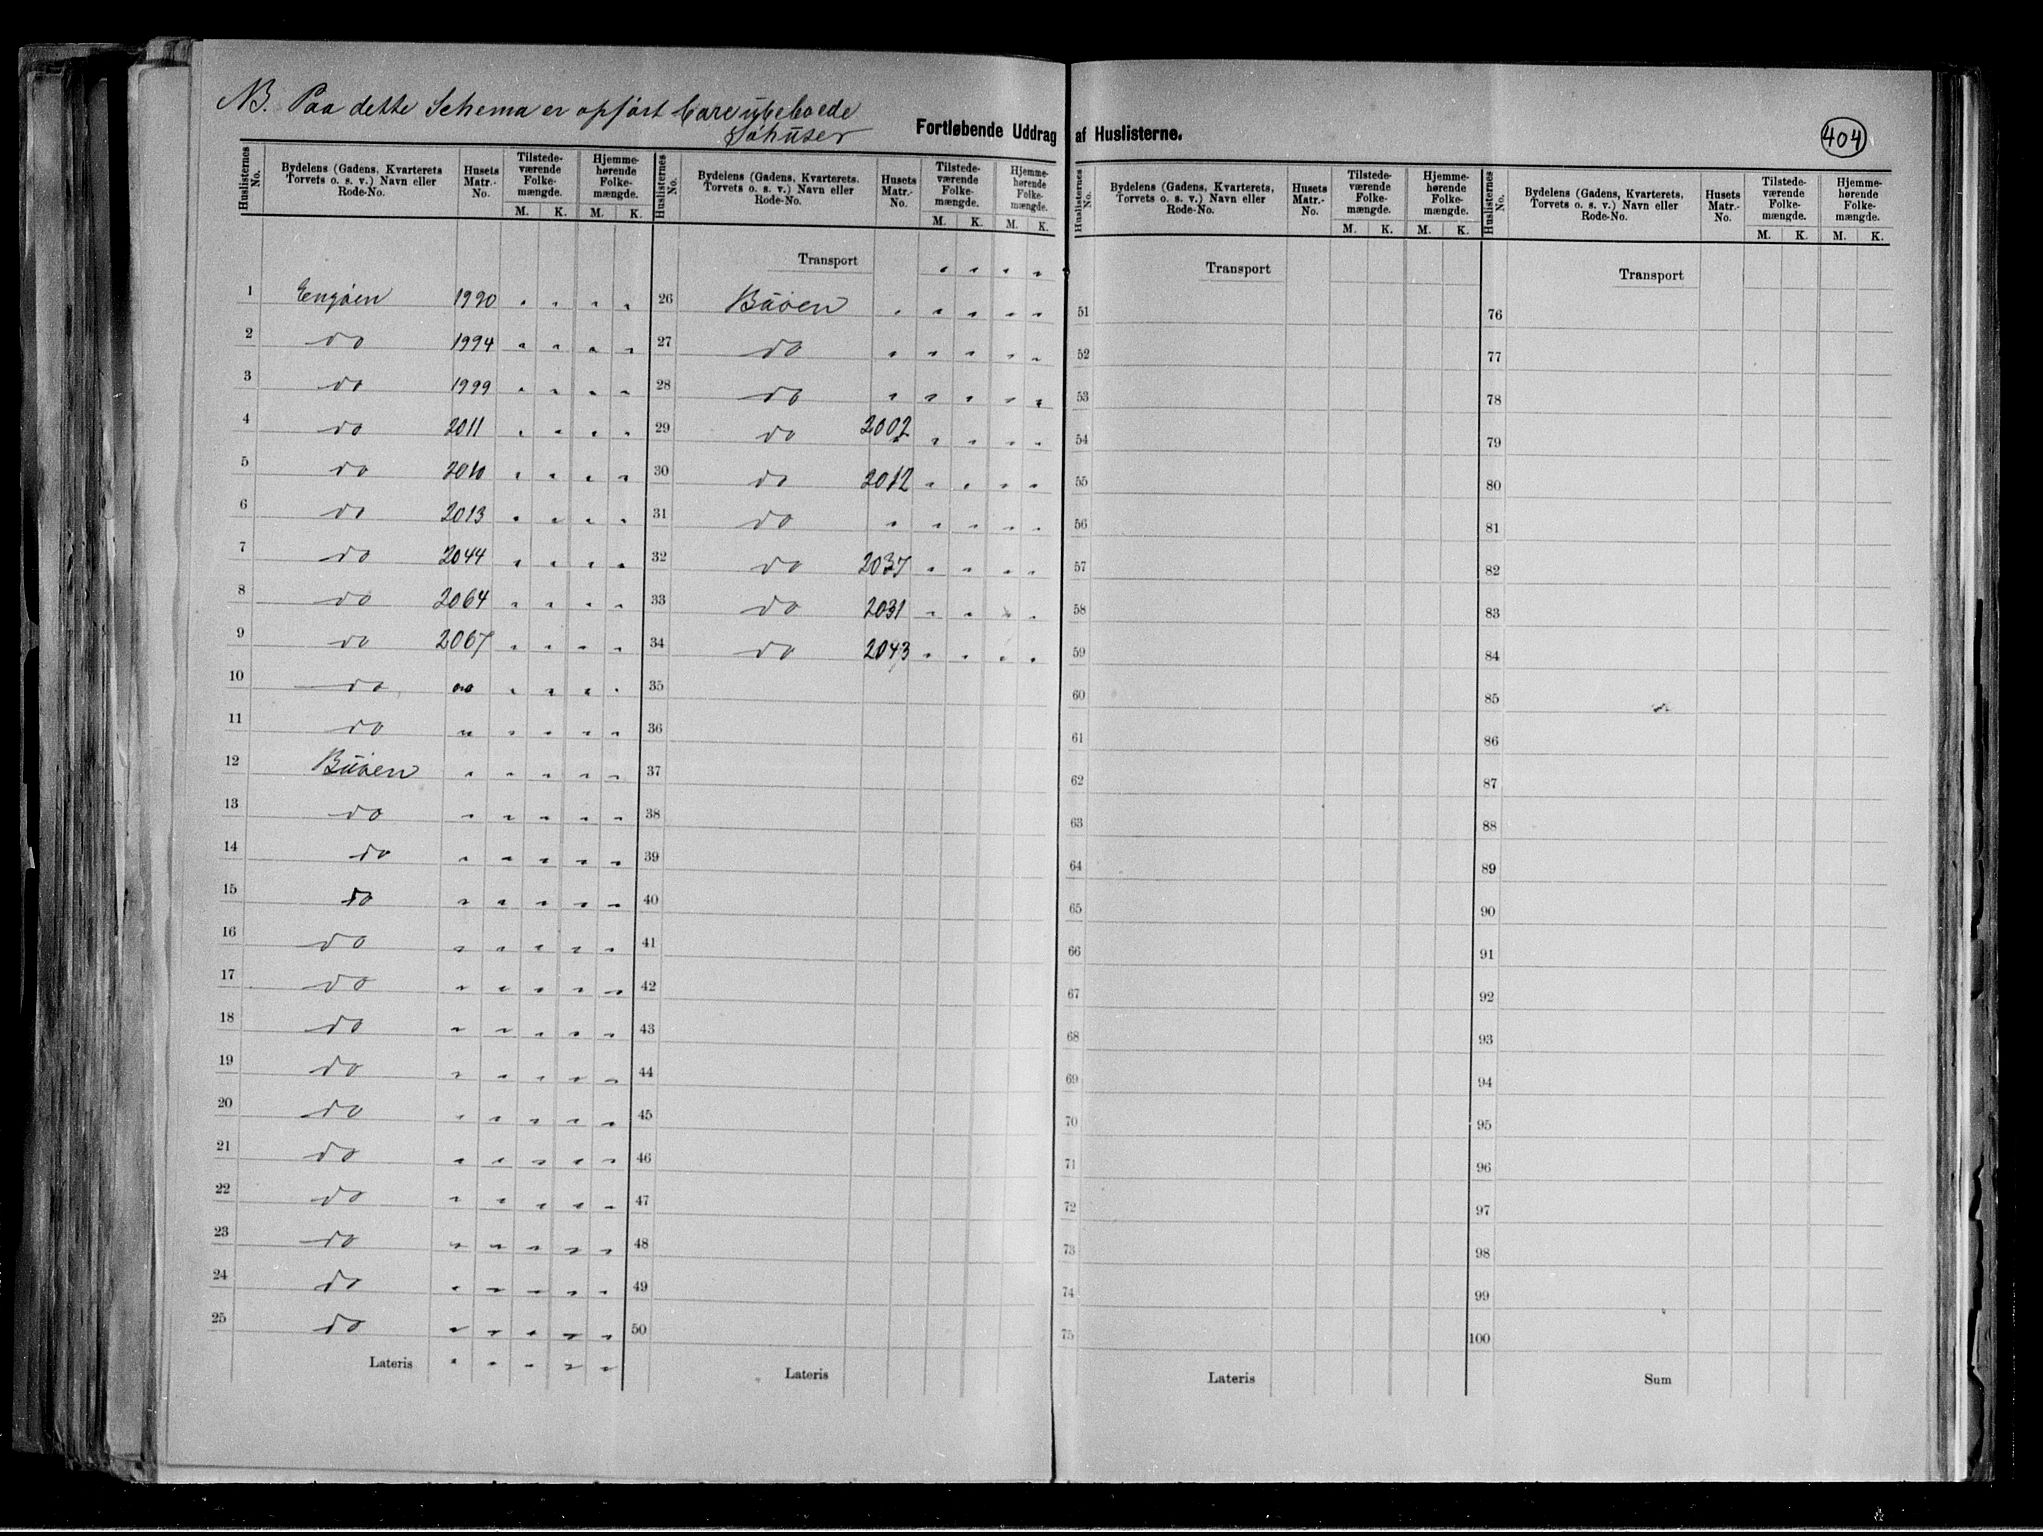 NB. Paa dette Schema er opført bare ubeboede
Søhuser
Fortløbende Uddrag af Huslisterne.
404
Huslisternes No. Bydelens (Gadens, Kvarterets Torvets o. s. v.) Navn eller Rode-No. Husets Matr.-No. Tilstedeværende Folkemængde. M. K. Hjemmehørende Folkemængde. M. K.
1 Engøen 1990 " " " "
2 do 1994 " " " "
3 do 1999 " " " "
4 do 2011 " " " "
5 do 2010 " " " "
6 do 2013 " " " "
7 do 2044 " " " "
8 do 2064 " " " "
9 do 2067 " " " "
10 do " " " " "
11 do " " " " "
12 Buøen " " " " "
13 do " " " " "
14 do " " " " "
15 do " " " " "
16 do " " " " "
17 do " " " " "
18 do " " " " "
19 do " " " " "
20 do " " " " "
21 do " " " " "
22 do " " " " "
23 do " " " " "
24 do " " " " "
25 do " " " " "
Lateris " " " " "
Huslisternes No. Bydelens (Gadens, Kvarterets. Torvets o. s. v.) Navn eller Rode-No. Husets Matr.-No. Tilstedeværende Folkemængde. M. K. Hjemmehørende Folkemængde. M. K.
Transport " " " "
26 Buöen " " " " "
27 do " " " " "
28 do " " " " "
29 do 2002 " " " "
30 do 2012 " " " "
31 do " " " " "
32 do 2037 " " " "
33 do 2031 " " " "
34 do 2043 " " " "
35
36
37
38
39
40
41
42
43
44
45
46
47
48
49
50
Lateris
Huslisternes No. Bydelens (Gadens, Kvarterets, Torvets o. s. v.) Navn eller Rode-No. Husets Matr.-No. Tilstedeværende Folkemængde. M. K. Hjemmehørende Folkemængde. M. K.
Transport
51
52
53
54
55
56
57
58
59
60
61
62
63
64
65
66
67
68
69
70
71
72
73
74
75
Lateris
Huslisternes No. Bydelens (Gadens, Kvarterets, Torvets o. s. v.) Navn eller Rode-No. Husets Matr.-No. Tilstedeværende Folkemængde. M. K. Hjemmehørende Folkemængde. M. K.
Transport
76
77
78
79
80
81
82
83
84
85
86
87
88
89
90
91
92
93
94
95
96
97
98
99
100
Sum